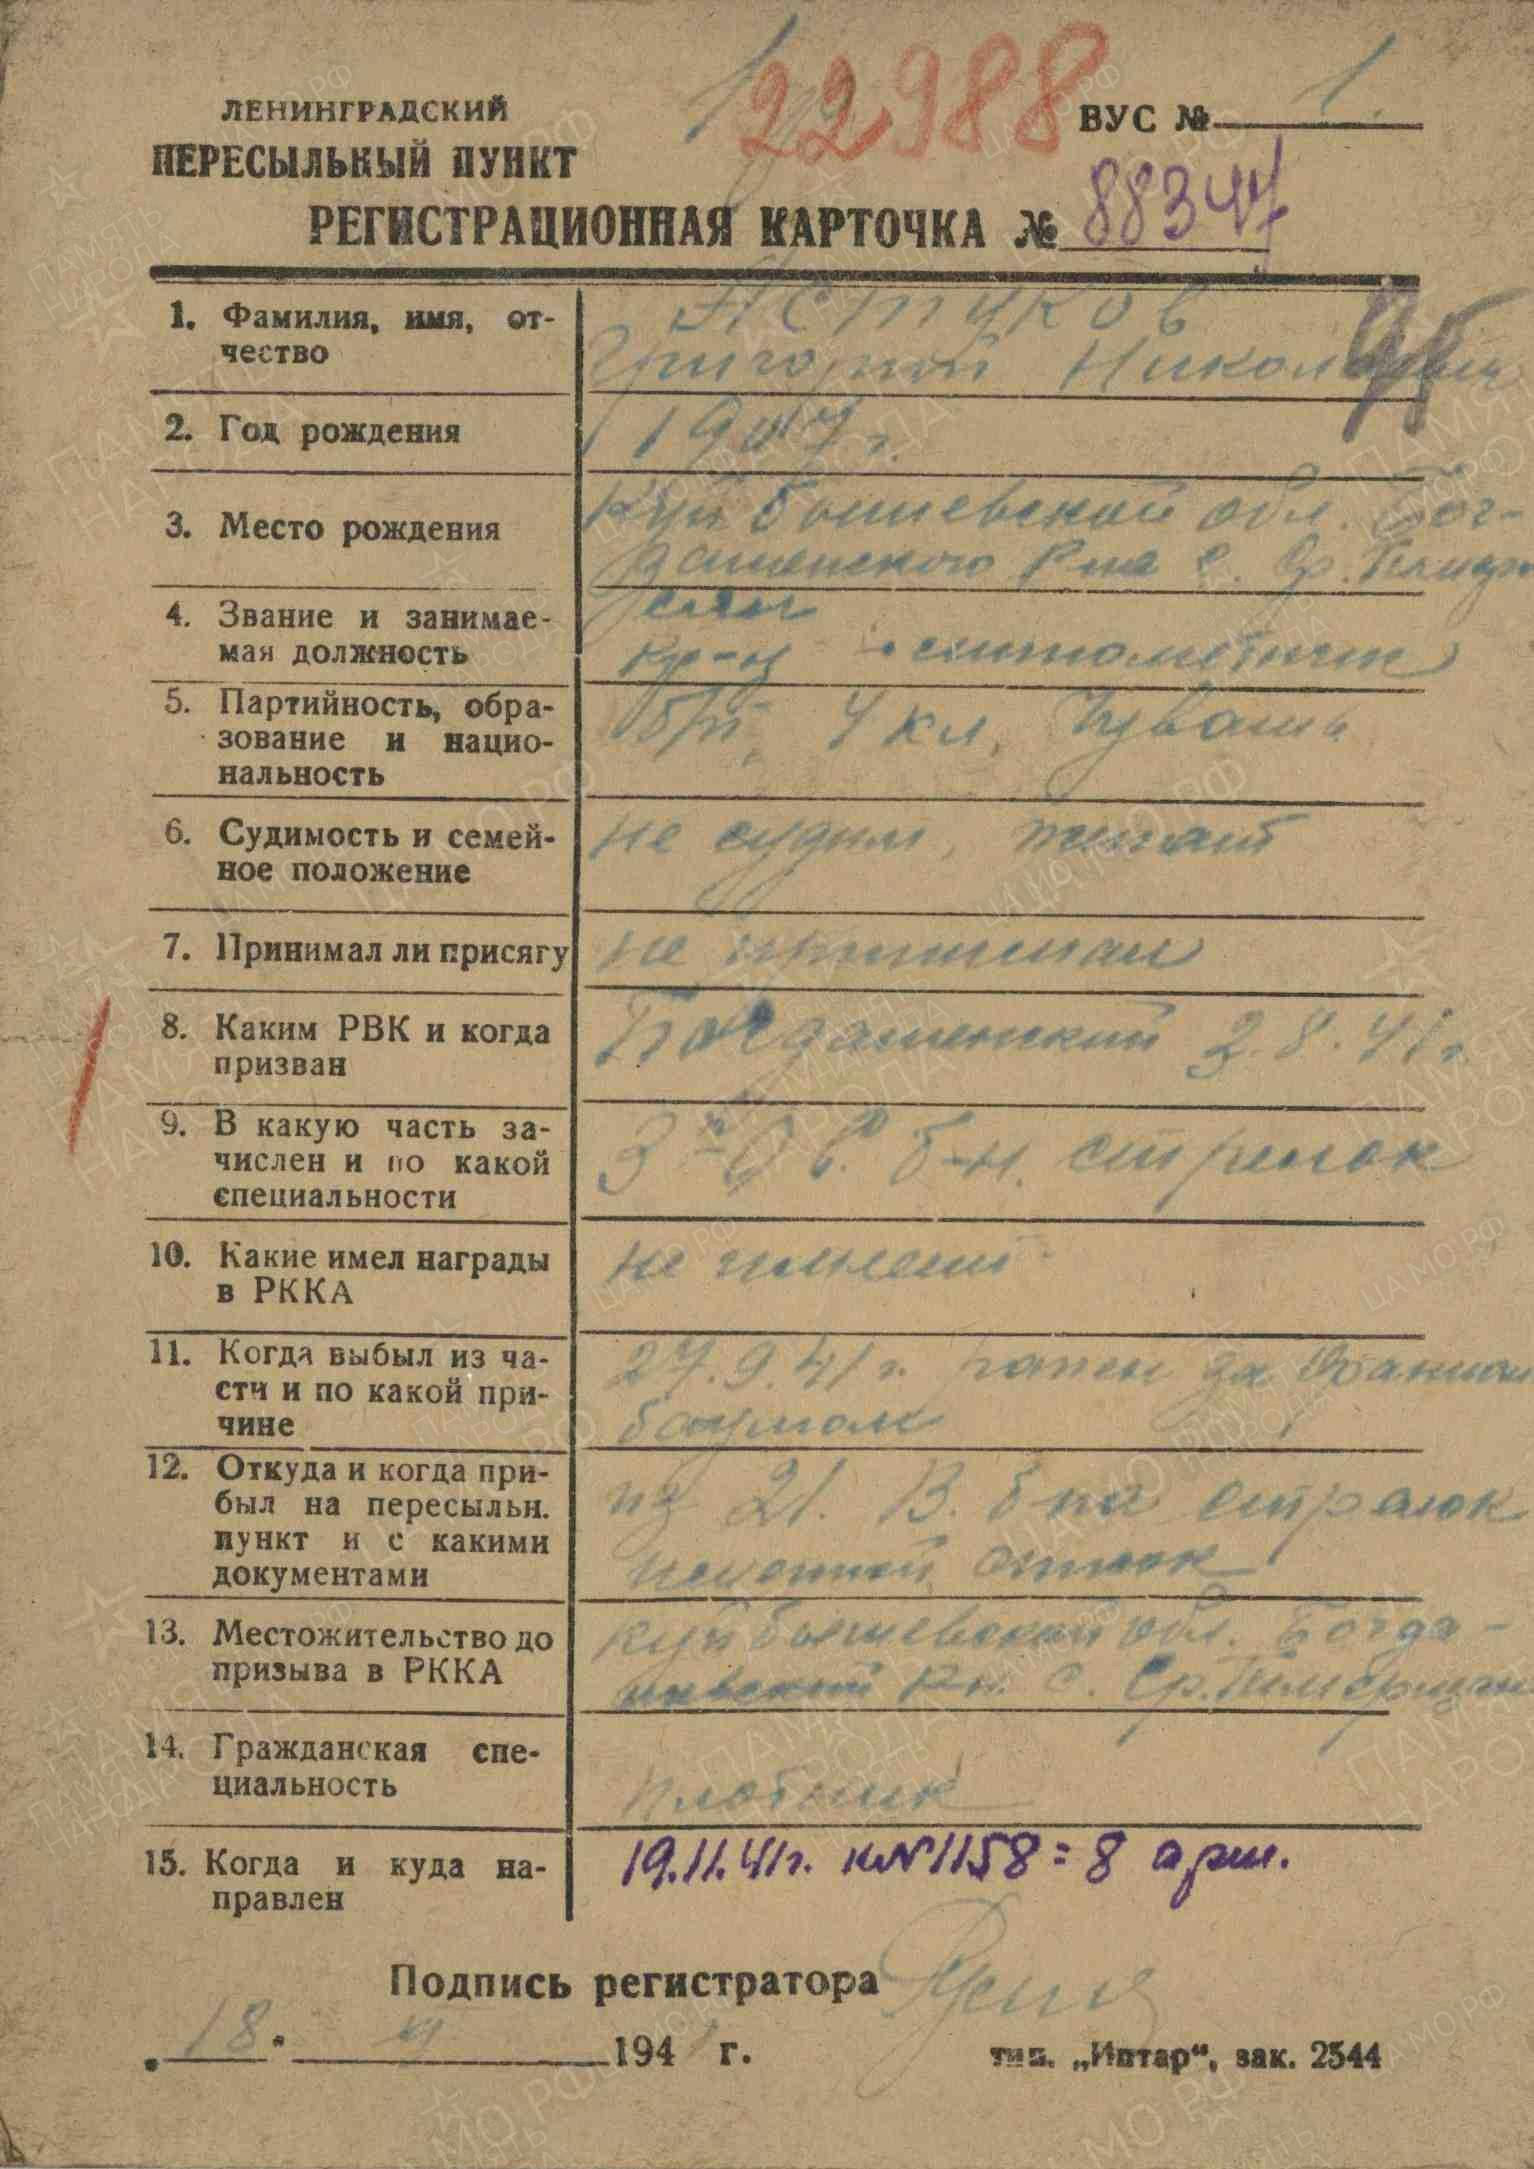 22988
ЛЕНИНГРАДСКИЙ
ПЕРЕСЫЛЬНЫЙ ПУНКТ
ВУС № 1
РЕГИСТРАЦИОННАЯ КАРТОЧКА № 88344
1. Фамилия, имя, от-
чество
Григорий Николаевич
2. Год рождения
1907 г.
3. Место рождения
Куйбышевской обл. Бог-
дашкинского с. Ср.
4. Звание и занимае-
мая должность
кр-ц
5. Партийность, обра-
зование и нацио-
нальность
б/п, 4 кл, Чуваш
6. Судимость и семей-
ное положение
не судим, женат
7. Принимал ли присягу
не принимал
8. Каким РВК и когда
призван
Богдашкинский 2.8.41 г.
9. В какую часть за-
числен и по какой
специальности
б-н. стрелок
10. Какие имел награды
в РККА
не имеет
11. Когда выбыл из ча-
сти и по какой при-
чине
27.9.41 г. ранен
12. Откуда и когда при-
был на пересыльн.
пункт и с какими
документами
из 21. В. б-на стрелок
13. Местожительство до
призыва в РККА
Куйбышевской обл. Богда-
с. Ср.
14. Гражданская спе-
циальность
плотник
15. Когда и куда на-
правлен
19.11.41г. к№1158=8 арм.
Подпись регистратора
18. 194 г.
тип. „Иптар“, зак. 2544
ПАМЯТЬ НАРОДА
ЦАМО РФ